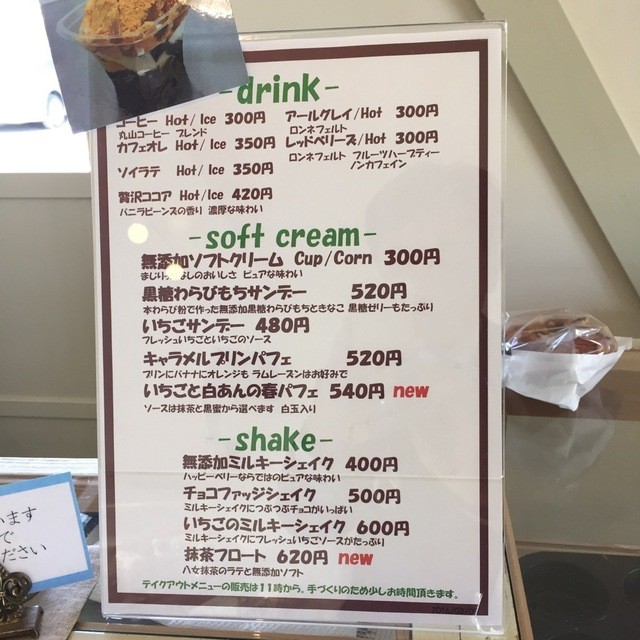 -drink-
コーヒー Hot/Ice 300円
丸山コーヒー ブレンド
カフェオレ Hot/Ice 350円
ソイラテ Hot/Ice 350円
贅沢ココア Hot/Ice 420円
バニラビーンズの香り 濃厚な味わい
アールグレイ/Hot 300円
ロンネフェルト
レッドベリーズ/Hot 300円
ロンネフェルト フルーツハーブティー
ノンカフェイン
-soft cream-
無添加ソフトクリーム Cup/Corn 300円
まじり なしのおいしさ ピュアな味わい
黒糖わらびもちサンデー 520円
本わらび粉で作った無添加黒糖わらびもちときなこ 黒糖ゼリーもたっぷり
いちごサンデー 480円
フレッシュいちごといちごのソース
キャラメルプリンパフェ 520円
プリンにバナナにオレンジも ラムレーズンはお好みで
いちごと白あんの春パフェ 540円 new
ソースは抹茶と黒蜜から選べます 白玉入り
-shake-
無添加ミルキーシェイク 400円
ハッピーベリーならではのピュアな味わい
チョコファッジシェイク 500円
ミルキーシェイクにつぶつぶチョコがいっぱい
いちごのミルキーシェイク 600円
ミルキーシェイクにフレッシュいちごソースがたっぷり
抹茶フロート 620円 new
八女抹茶のラテと無添加ソフト
テイクアウトメニューの販売は11時から。手づくりのため少しお時間頂きます。
います
で
ださい